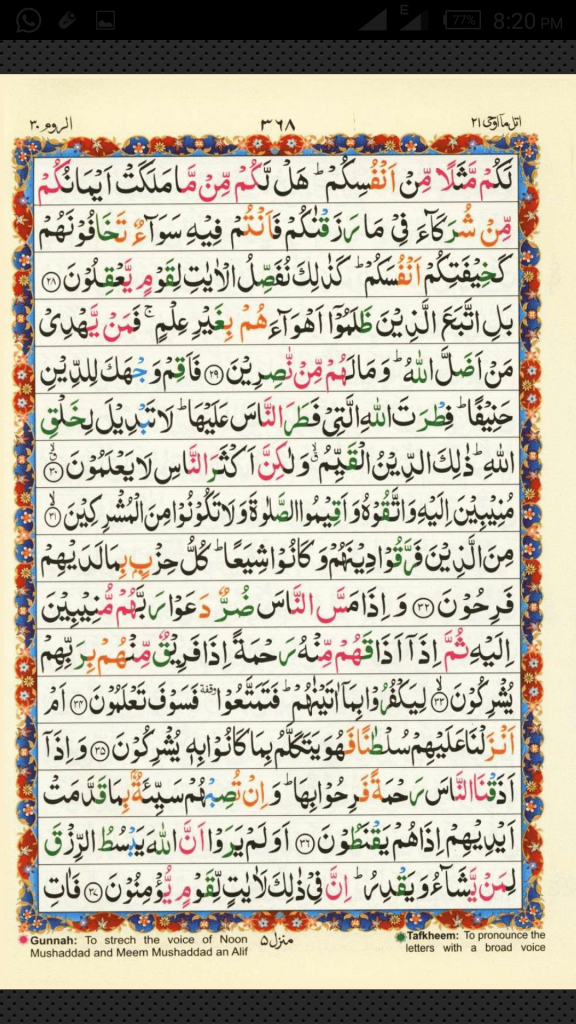 E 77% 8:20 PM
اتل ما اوحی ٢١ ٣٦٨ الروم ٣٠
لَكُمْ مَّثَلًا مِّنْ اَنْفُسِكُمْ ؕ هَلْ لَّكُمْ مِّنْ مَّا مَلَكَتْ اَيْمَانُكُمْ
مِّنْ شُرَكَآءَ فِىْ مَا رَزَقْنٰكُمْ فَاَنْتُمْ فِيْهِ سَوَآءٌ تَخَافُوْنَهُمْ
كَخِيْفَتِكُمْ اَنْفُسَكُمْ ؕ كَذٰلِكَ نُفَصِّلُ الْاٰيٰتِ لِقَوْمٍ يَّعْقِلُوْنَ ۝٢٨
بَلِ اتَّبَعَ الَّذِيْنَ ظَلَمُوْۤا اَهْوَآءَهُمْ بِغَيْرِ عِلْمٍ ۚ فَمَنْ يَّهْدِىْ
مَنْ اَضَلَّ اللّٰهُ ؕ وَمَا لَهُمْ مِّنْ نّٰصِرِيْنَ ۝٢٩ فَاَقِمْ وَجْهَكَ لِلدِّيْنِ
حَنِيْفًا ؕ فِطْرَتَ اللّٰهِ الَّتِىْ فَطَرَ النَّاسَ عَلَيْهَا ؕ لَا تَبْدِيْلَ لِخَلْقِ
اللّٰهِ ؕ ذٰلِكَ الدِّيْنُ الْقَيِّمُ ۙ وَلٰكِنَّ اَكْثَرَ النَّاسِ لَا يَعْلَمُوْنَ ۝٣٠
مُنِيْبِيْنَ اِلَيْهِ وَاتَّقُوْهُ وَاَقِيْمُوا الصَّلٰوةَ وَلَا تَكُوْنُوْا مِنَ الْمُشْرِكِيْنَ ۝٣١
مِنَ الَّذِيْنَ فَرَّقُوْا دِيْنَهُمْ وَكَانُوْا شِيَعًا ؕ كُلُّ حِزْبٍۭ بِمَا لَدَيْهِمْ
فَرِحُوْنَ ۝٣٢ وَاِذَا مَسَّ النَّاسَ ضُرٌّ دَعَوْا رَبَّهُمْ مُّنِيْبِيْنَ
اِلَيْهِ ثُمَّ اِذَاۤ اَذَاقَهُمْ مِّنْهُ رَحْمَةً اِذَا فَرِيْقٌ مِّنْهُمْ بِرَبِّهِمْ
يُشْرِكُوْنَ ۝٣٣ لِيَكْفُرُوْا بِمَاۤ اٰتَيْنٰهُمْ ؕ فَتَمَتَّعُوْا وقفة فَسَوْفَ تَعْلَمُوْنَ ۝٣٤ اَمْ
اَنْزَلْنَا عَلَيْهِمْ سُلْطٰنًا فَهُوَ يَتَكَلَّمُ بِمَا كَانُوْا بِهٖ يُشْرِكُوْنَ ۝٣٥ وَاِذَاۤ
اَذَقْنَا النَّاسَ رَحْمَةً فَرِحُوْا بِهَا ؕ وَاِنْ تُصِبْهُمْ سَيِّئَةٌۢ بِمَا قَدَّمَتْ
اَيْدِيْهِمْ اِذَا هُمْ يَقْنَطُوْنَ ۝٣٦ اَوَلَمْ يَرَوْا اَنَّ اللّٰهَ يَبْسُطُ الرِّزْقَ
لِمَنْ يَّشَآءُ وَيَقْدِرُ ؕ اِنَّ فِىْ ذٰلِكَ لَاٰيٰتٍ لِّقَوْمٍ يُّؤْمِنُوْنَ ۝٣٧ فَاٰتِ
Gunnah: To strech the voice of Noon
Mushaddad and Meem Mushaddad an Alif
منزل ٥
Tafkheem: To pronounce the
letters with a broad voice